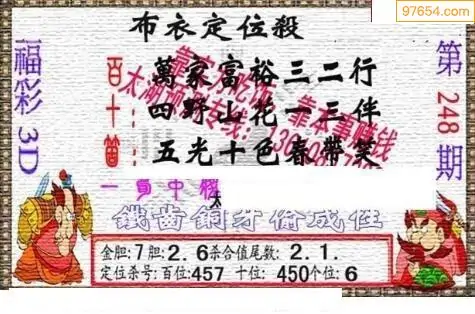 97654.com
布衣定位殺
福彩3D
第248期
百:萬家富裕三二行
十:四野山花一三伴
個:五光十色春帶笑
鐵齒銅牙偷成性
金胆:7胆:2.6杀合值尾数:2.1.
定位杀号:百位:457 十位:450个位:6